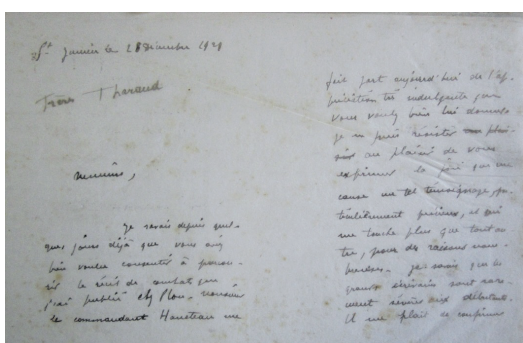 St Junien le 28 Décembre 1929
Frères Tharaud
Messieurs,
Je savais depuis quel-
ques jours déjà que vous avez
bien voulu consentir à parcou-
rir le récit de combat que
j'ai publié chez Plon. Monsieur
le commandant me
fait part aujourd'hui de l'ap-
préciation très indulgente que
vous voulez bien lui donner
je ne puis résister
au plaisir de vous
exprimer la joie que me
cause un tel témoignage, pa-
rticulièrement précieux, et qui
me touche plus que tout au-
tre, pour des raisons nom-
breuses. Je savais que les
grands écrivains sont rare-
ment sévères aux débutants.
Il me plait de